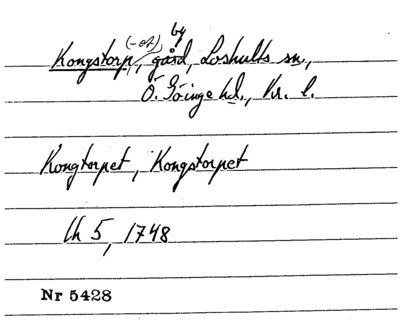 (-et) by
Kongstorp, gård, Loshults sn.,
Ö. Göinge hd., Kr. l.
Kongtorpet, Kongstorpet
Lh 5, 1748
Nr 5428